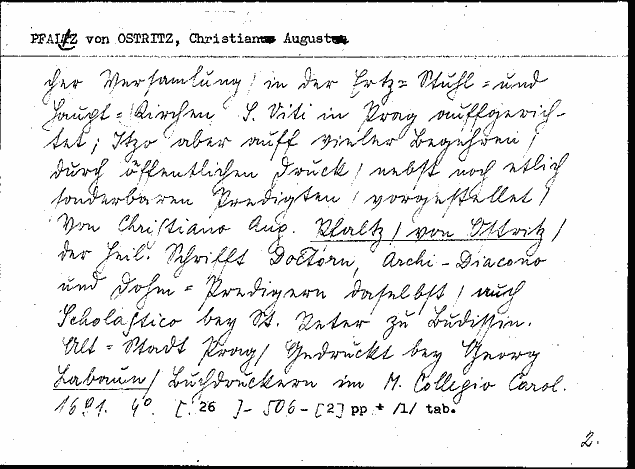 PFALTZ von OSTRITZ, Christian August
cher Versamlung / in der Ertz= Stuhl = und
Haupt = Kirchen S. Viti in Prag auffgerich-
tet; Itzo aber auff vieler Begehren /
durch öffentlichen Druck / nebst noch etlich
sonderbaren Predigten / vorgestellet /
Von Christiano Aug. Pfaltz / von Ostritz /
der Heil. Schrifft Doctorn, Archi-Diacono
und Dohm = Predigern daselbst / auch
Scholastico bey St. Peter zu Budissin.
Alt = Stadt Prag / Gedruckt bey Georg
Labaun / Buchdruckern im M. Collegio Carol.
1691. 4° [ 26 ]-506-[2] pp + /1/ tab.
2.